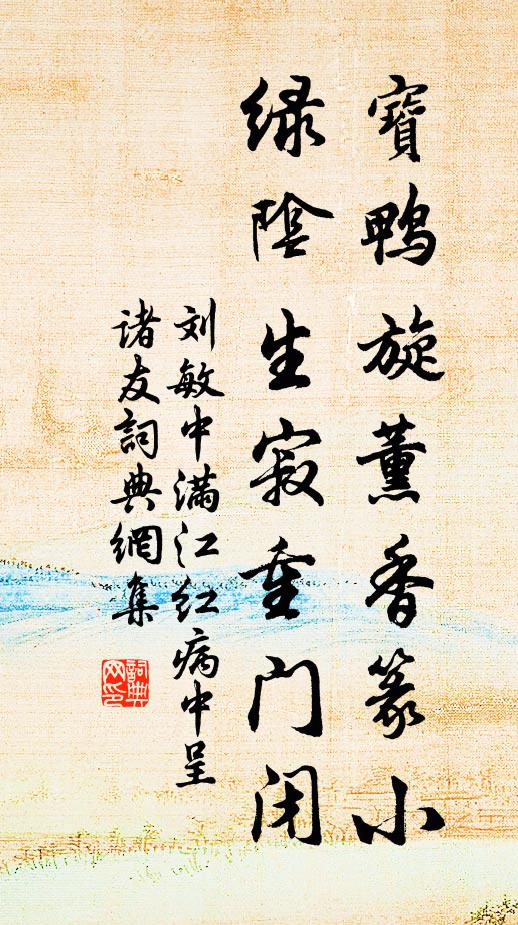 寶鴨旋薰香篆小
绿陰生寂重門闭
刘敏中满江红病中呈
诸友詞典網集
詞典网印